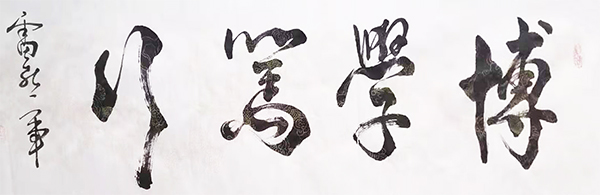 博學篤行
雷新軍